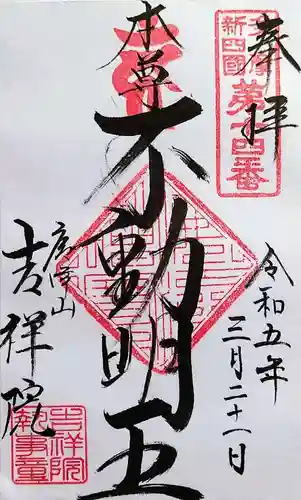 奉拝
新四國
第十四番
令和五年
三月二十一日
本尊
不動明王
吉祥院
吉祥院
執事章